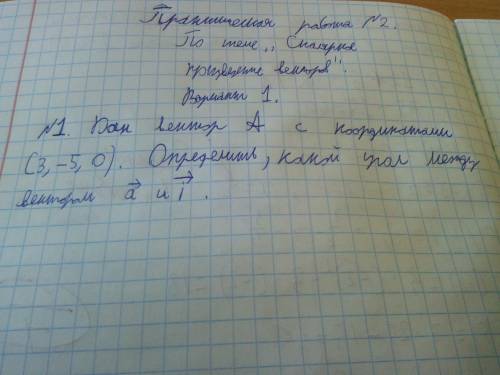 Практическая работа №2.
По теме „Скалярное
произведение векторов".
Вариант 1.
№1. Дан вектор А с координатами
(3, -5, 0). Определить, какой угол между
вектором а и i.